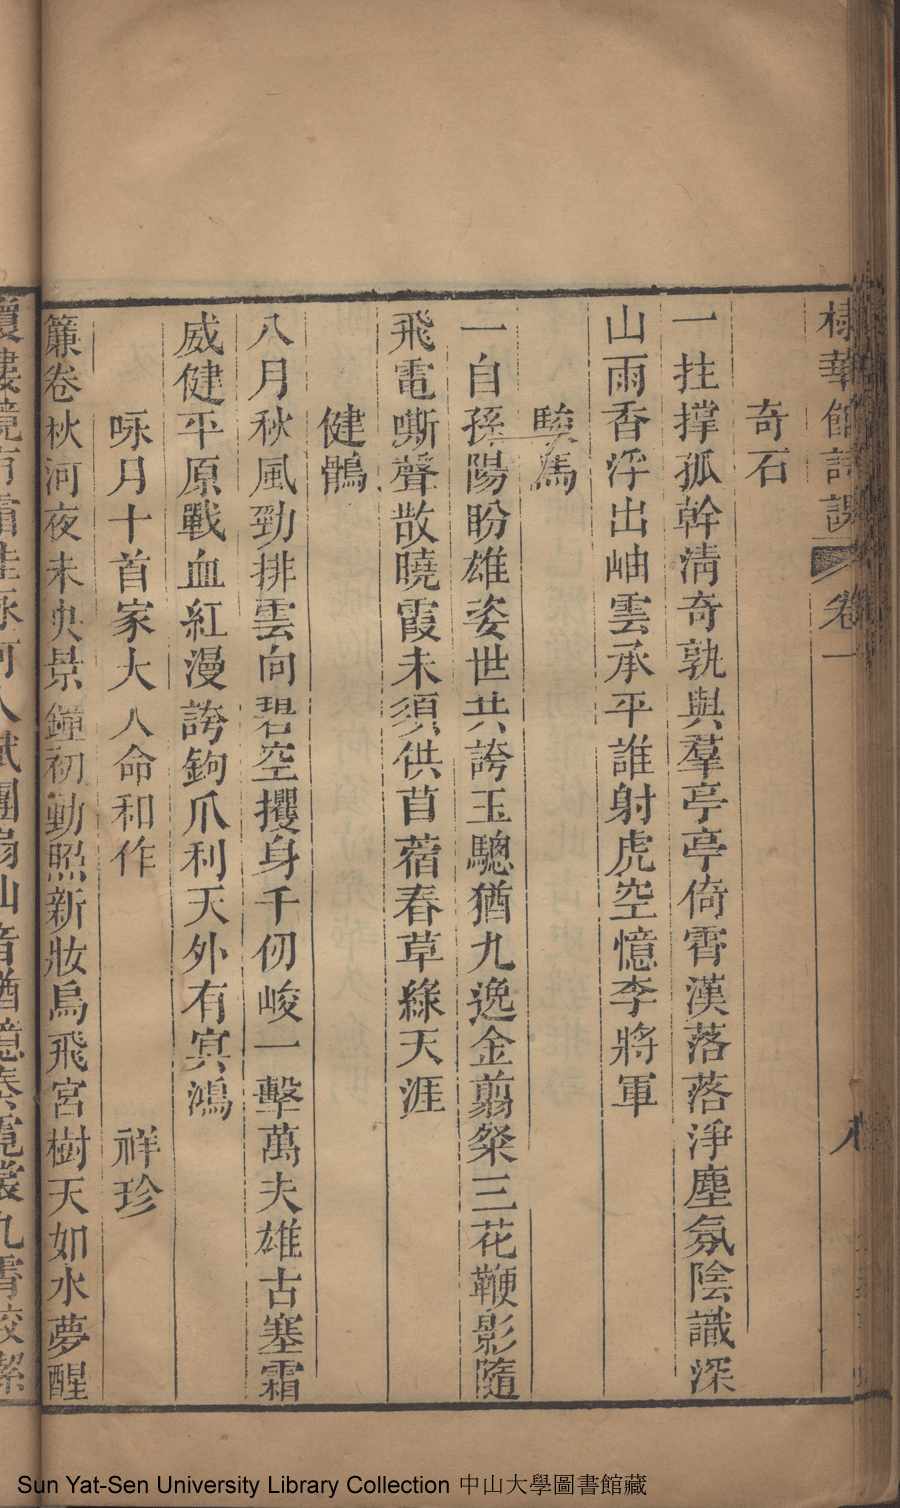 棣華館詩課 卷一 八
奇石
一拄撑孤幹清奇孰與羣亭亭倚霄漢落落淨塵氛陰識深
山雨香浮出岫雲承平誰射虎空憶李將軍
駿馬
一自孫陽盼雄姿世共誇玉驄猶九逸金翦粲三花鞭影隨
飛電嘶聲散曉霞未須供苜蓿春草綠天涯
健鶻
八月秋風勁排雲向碧空攫身千仞峻一擊萬夫雄古塞霜
威健平原戰血紅漫誇鉤爪利天外有冥鴻
咏月十首家大人命和作 祥珍
簾卷秋河夜未央景鐘初動照新妝烏飛宮樹天如水夢醒
Sun Yat-Sen University Library Collection 中山大學圖書館藏